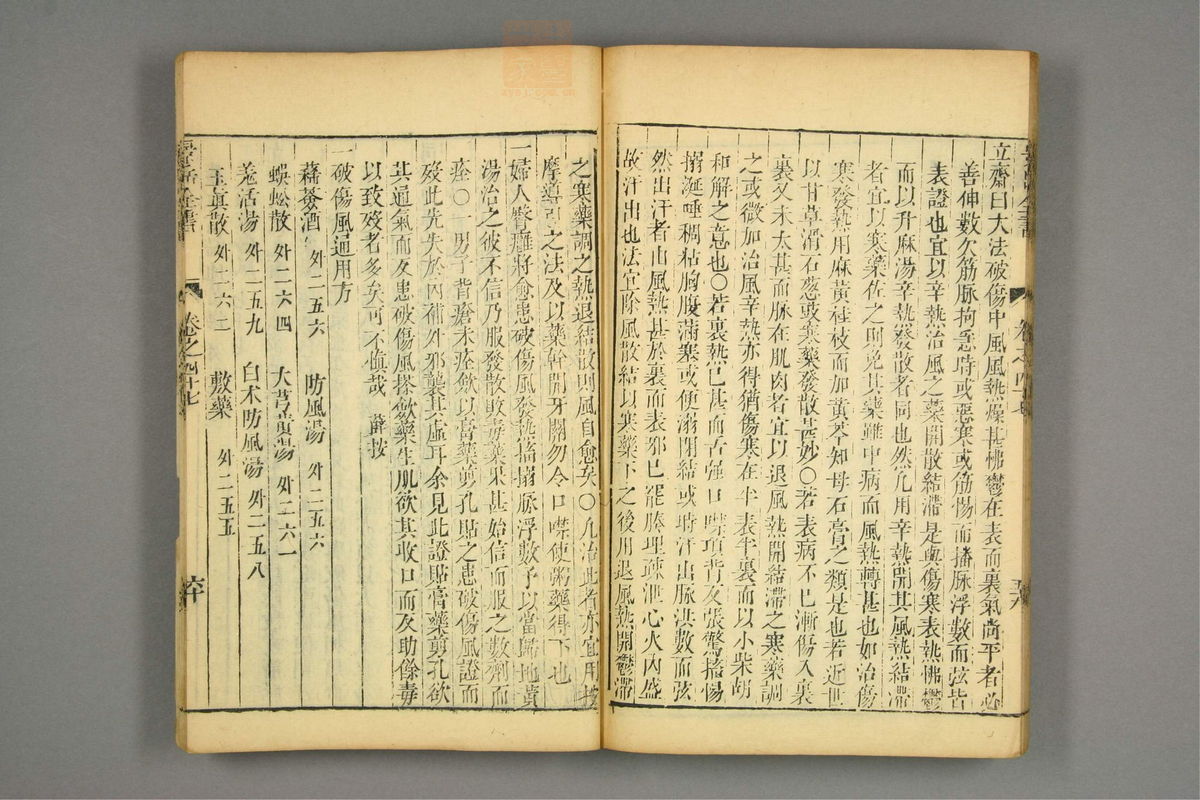 立齋曰大法破傷中風風熱燥甚怫鬱在表而裏氣尚平者必
善伸數欠筋脉拘急時或惡寒或筋惕而搐脉浮數而弦皆
表證也宜以辛熱治風之藥開散結滯是與傷寒表熱怫鬱
而以升麻湯辛熱發散者同也然凡用辛熱開其風熱結滯
者宜以寒藥佐之則免其藥雖中病而風熱轉甚也如治傷
寒發熱用麻黃桂枝而加黃芩知母石膏之類是也若近世
以甘草滑石蔥豉寒藥發散甚妙〇若表病不已漸傷入裏
裏又未太甚而脉在肌肉者宜以退風熱開結滯之寒藥調
之或微加治風辛熱亦得猶傷寒在半表半裏而以小柴胡
和解之意也〇若裏熱已甚而舌强口噤項背反張驚搐惕
搦涎唾稠粘胸腹滿塞或便溺閉結或時汗出脉洪數而弦
然出汗者由風熱甚於裏而表邪已罷腠理疎泄心火內盛
故汗出也法宜除風散結以寒藥下之後用退風熱開鬱滯
之寒藥調之熱退結散則風自愈矣〇凡治此者亦宜用按
摩導引之法及以藥幹開牙關勿令口噤使粥藥得下也
一婦人臀癰將愈患破傷風發熱搐搦脉浮數予以當歸地黃
湯治之彼不信乃服發散敗毒藥果甚始信而服之數劑而
痊〇一男子背瘡未痊歛以膏藥剪孔貼之患破傷風證而
歿此先失於內補外邪襲其虛耳余見此證貼膏藥剪孔欲
其通氣而反患破傷風搽歛藥生肌欲其收口而反助餘毒
以致歿者多矣可不愼哉　薛按
一破傷風通用方
蘹蔆酒　外二五六　防風湯　外二五六
蜈蚣散　外二六四　大芎黃湯　外二六一
羗活湯　外二五九　白朮防風湯　外二五八
玉眞散　外二六二　敷藥　外二五五
卷之四十七
六十